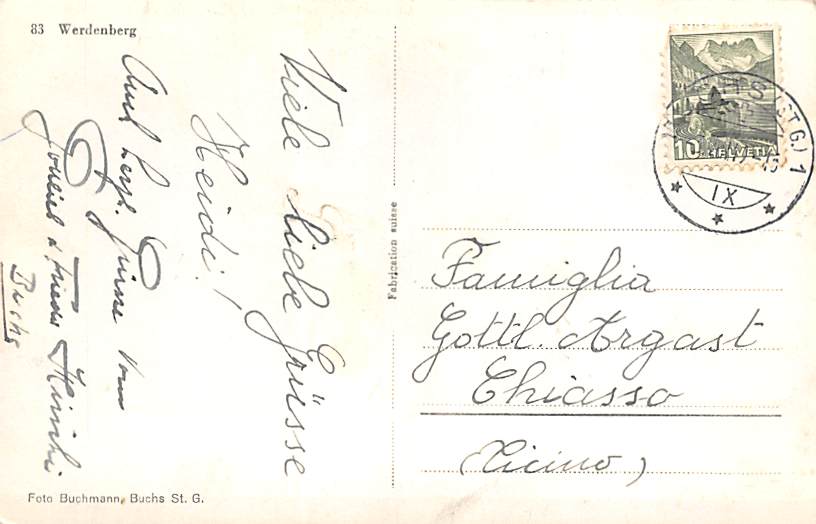 83 Werdenberg
Viele liebe Grüsse
Heidi!
Auch herzl. Grüsse von
Gottlieb & Frieda
Buchs
Foto Buchmann, Buchs St. G.
Fabrication suisse
10 HELVETIA
(ST. G.) 1
IX
Famiglia
Gottl. Argast
Chiasso
(Ticino)